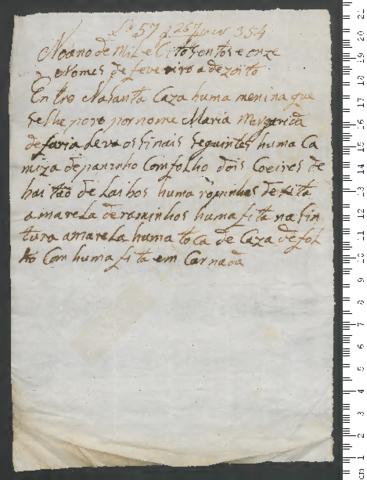 Lo 57 f 267 Nº 354
No ano de Mil e Oito Sentos e onze
no mes de fevereiro a dezoito
Entro Na Santa Caza huma menina que
se lhe pora por nome Maria Margarida
de faria leva os sinais seguintes huma Ca
miza de paninho Com folho dois Coeiros de
baitão de Laibos huma ropinha de xita
amarela de raminhos huma fita na sin
tura amarela huma toca de Caza de fol
ho Com huma fita em Carnada
cm 1 2 3 4 5 6 7 8 9 10 11 12 13 14 15 16 17 18 19 20 21